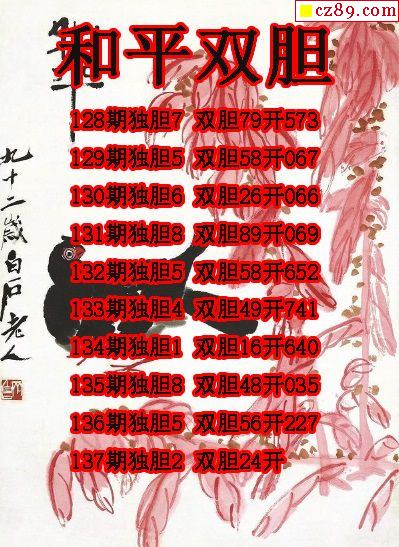 cz89.com
和平双胆
128期独胆7 双胆79开573
129期独胆5 双胆58开067
130期独胆6 双胆26开066
131期独胆8 双胆89开069
132期独胆5 双胆58开652
133期独胆4 双胆49开741
134期独胆1 双胆16开640
135期独胆8 双胆48开035
136期独胆5 双胆56开227
137期独胆2 双胆24开
九十二岁白石老人